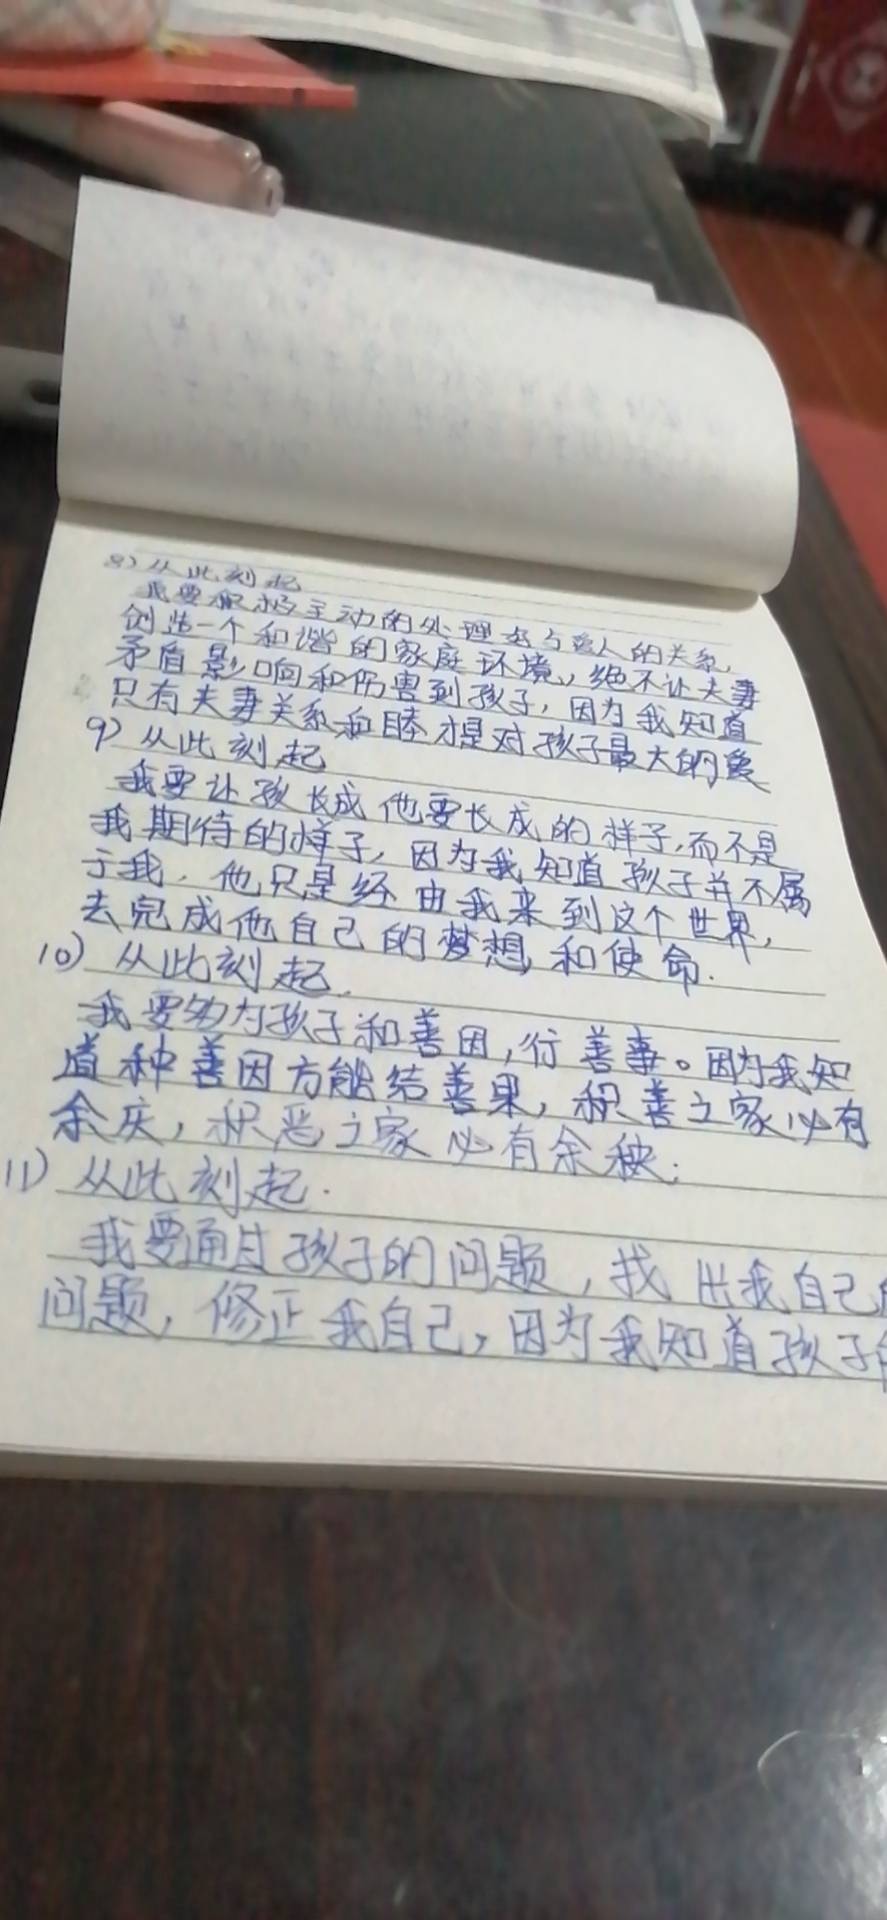 8) 从此刻起
我要积极主动的处理好与爱人的关系,
创造一个和谐的家庭环境,绝不让夫妻
矛盾影响和伤害到孩子,因为我知道
只有夫妻关系和睦才是对孩子最大的爱
9) 从此刻起
我要让孩长成他要长成的样子,而不是
我期待的样子,因为我知道孩子并不属
于我.他只是经由我来到这个世界,
去完成他自己的梦想和使命.
10) 从此刻起.
我要为孩子和善因,行善事。因为我知
道种善因方能结善果,积善之家必有
余庆,积恶之家必有余秧;
11) 从此刻起.
我要通过孩子的问题,找出我自己
问题,修正我自己,因为我知道孩子